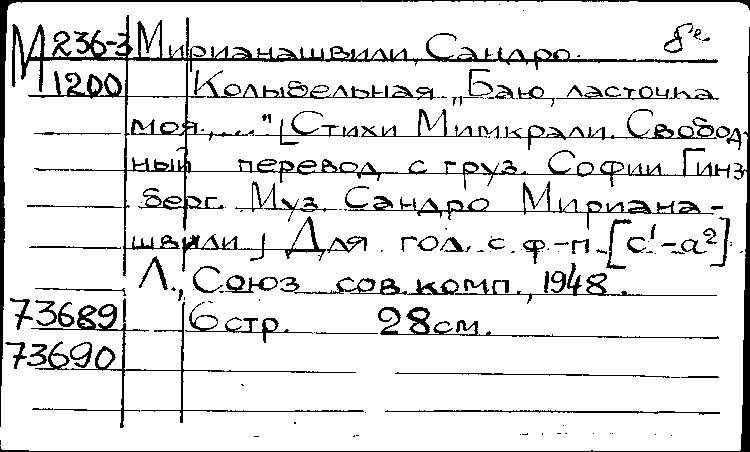 М 236-3 Мирианашвили, Сандро.
1200 Колыбельная „Баю, ласточка
моя,...." [Стихи Мимкрали. Свобод-
ный перевод с груз. Софии Гинз-
берг. Муз. Сандро Мириана-
швили] Для гол. с ф-п. [c¹-a²]
Л., Союз сов. комп., 1948.
73689 6 стр. 28 см.
73690